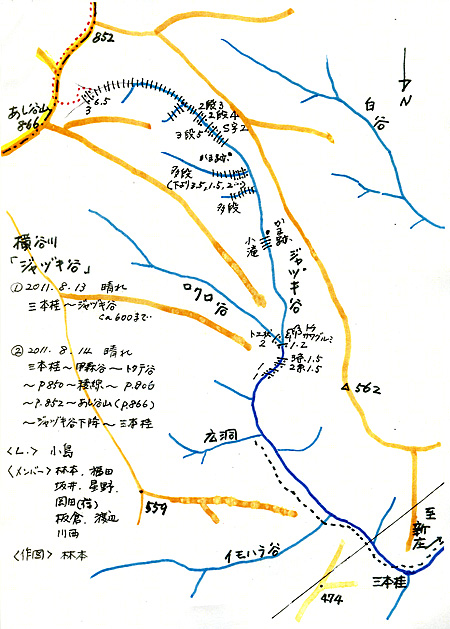 852
あし谷山
866
6.5
3
2段3
2段4
S字2
3段5
かま跡
多段
(下より3.5,1.5,2…)
多段
白谷
N
かま跡
小滝
ジャヅキ谷
ロクロ谷
トユ状
2
トチ
サワグルミ
1.2
3条1.5
2条1.5
1
562
横谷川
「ジャヅキ谷」
①2011.8.13 晴れ
三本桂〜ジャヅキ谷
ca600まで
②2011.8.14 晴れ
三本桂〜伊森谷〜トクデ谷
〜p850〜稜線〜p.806
〜p.852〜あし谷山(p.866)
〜ジャヅキ谷下降〜三本桂
<L.> 小島
<メンバー> 林本、福田
坂井、星野、
岡田(浩)
板倉、渡辺
川西
<作図> 林本
広洞
559
イモハラ谷
474
三本桂
至
新
庄